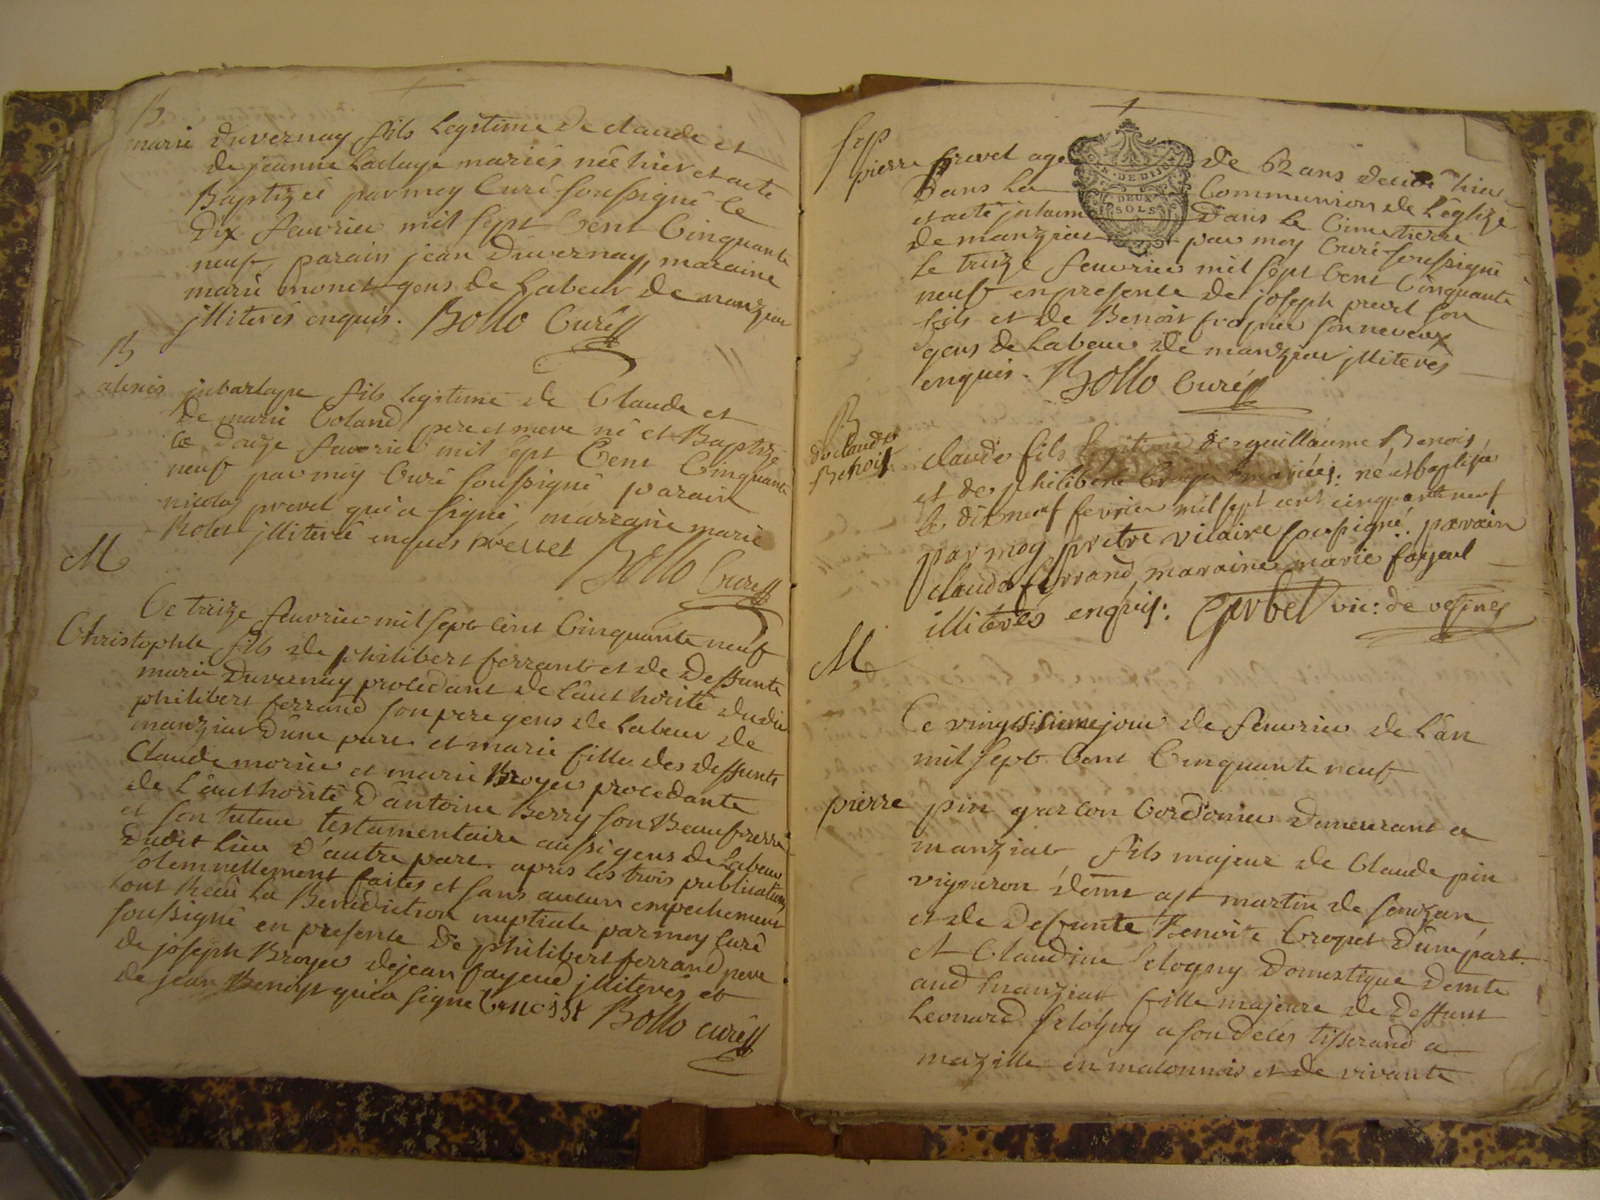 B
marie Duvernay fils legitime de claude et
de jeanne mariés née hier et a eté
Baptizée par moy Curé soussigné le
Dix feuvrier mil sept Cent Cinquante
neuf, parain jean Duvernay, maraine
marie monet gens de Labeur de manziat
jlliterés enquis. Bollo Curé
B
alexis fils legitime de Claude et
de marie Coland pere et mere né et Baptizé
le douze feuvrier mil sept Cent Cinquante
neuf par moy Curé soussigné parain
nicolas prevel qui a signé, marraine marie
jlliterée enquis prevel Bollo Curé
M
Ce treize feuvrier mil sept cent Cinquante neuf
Christophle fils de philibert ferrand et de Deffunte
marie Duvernay procedant de l'authorité dudit
philibert ferrand son pere gens de Labeur de
manziat d'une part et marie fille des deffunts
Claude morier et marie Broyer procedante
de L'authorité d'antoine Berry son Beaufrerre
et son tuteur testamentaire aussi gens de Labeur
Dudit lieu d'autre part. apres les trois publications
solemnellement faites et sans aucun empechement
sont Recu La Benediction nuptiale par moy Curé
soussigné en presente de philibert ferrand pere
de joseph Broyer de jean fayeud jlliterés et
de jean Benoist qui a signe benoist Bollo curé
sep
pierre prevel agé de 62 ans decedé hier
GE. DE DIJON
DEUX
SOLS
Dans La Communion de L'eglize
et a eté jnhumé Dans le Cimetierre
de manziat par moy Curé soussigné
Le treize feuvrier mil sept Cent Cinquante
neuf en presente de joseph prevel son
fils et de Benoit frapier son neveux
gens de Labeur de manziat jlliterés
enquis. Bollo Curé
B
de claude
Benoist
claude fils legitime de guillaume Benois
et de philiberte mariés: né et baptisé
le dixneuf fevrier mil sept cent cinquante neuf
par moy pretre vicaire soussigné. parain
claude ferrand, maraine marie fayeul
illiterés enquis: Gerbet vic: de vesines
M
Ce vingtsixiemejour de feuvrier de L'an
mil sept Cent Cinquante neuf
pierre pin garcon Cordonier demeurant a
manziat fils majeur de Claude pin
vigneron demt a st martin de senozan
et de Defunte Benoite Croquet d'une part.
et Claudine selogny Domestique demte
aud manziat fille majeure de Deffunt
Leonard selogny a son deces tisserand a
mazille en maconnois et de vivante